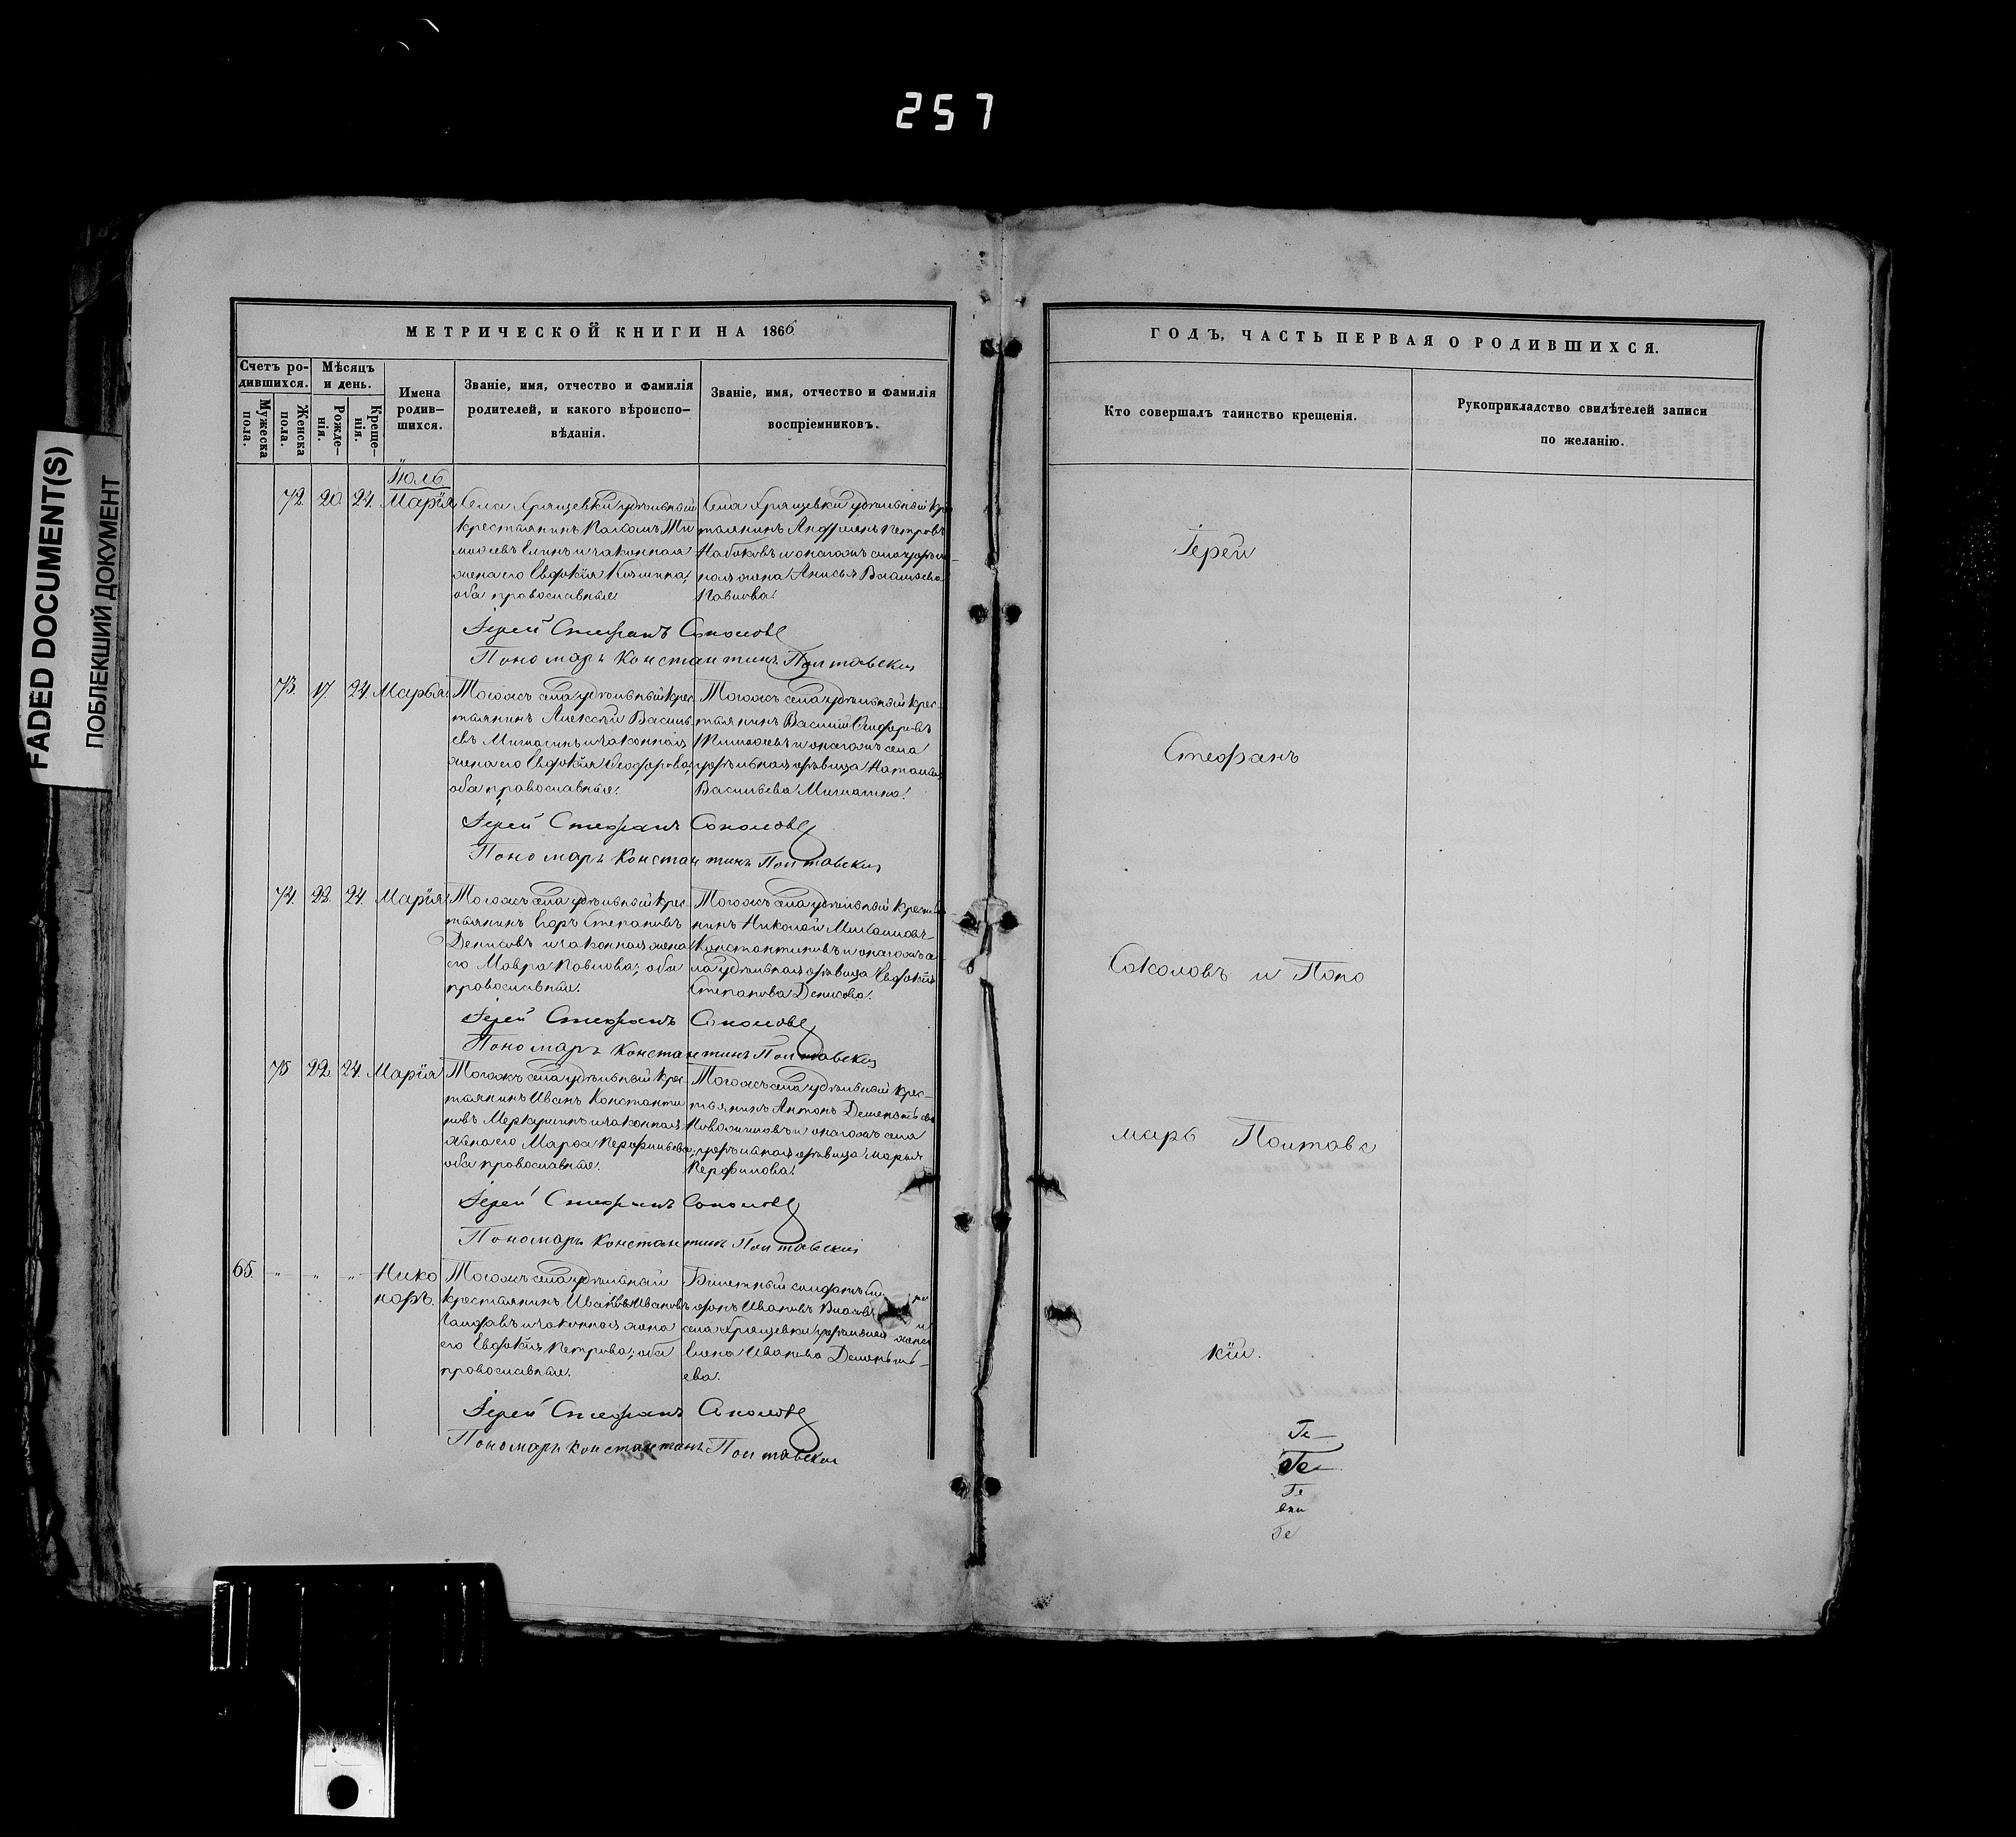 257
FADED DOCUMENT(S)
ПОБЛЕКШИЙ ДОКУМЕНТ
МЕТРИЧЕСКОЙ КНИГИ НА 1866
Счетъ ро-
дившихся.
Мужеска пола.
Женска пола.
Мѣсяцъ
и день.
Рожде-
нія.
Креще-
нія.
Имена
родив-
шихся.
Званіе, имя, отчество и фамилія
родителей, и какого вѣроиспо-
вѣданія.
Званіе, имя, отчество и фамилія
воспріемниковъ.
Іюль
72. 20 24. Марія
Села Хрящевки удѣльный
крестьянинъ Ти
моѳеевъ и законная
жена его Евдокія
оба православные
Села Хрящевки удѣльный кре
стьянинъ Петровъ
Набоковъ и онагожъ села удѣль
ная жена Анисья
Павлова.
Іерей Стефанъ Соколовъ
Пономарь Константинъ Полтавскій
73. 17. 24. Марья
Тогожъ села удѣльный крес
тьянинъ Алексѣй Василь
евъ и законная
жена его Евдокія Ѳеодорова,
оба православные.
Тогожъ села удѣльный крес
тьянинъ Василій
и онагожъ села
удѣльная дѣвица Наталья
Васильева
Іерей Стефанъ Соколовъ
Пономарь Константинъ Полтавскій
74. 23. 24. Марія
Тогожъ села удѣльный крес
тьянинъ Егоръ Степановъ
Денисовъ и законная жена
его Мавра Павлова; оба
православные.
Тогожъ села удѣльный крестья
нинъ Николай Михайловъ
Константиновъ и онагожъ се
ла удѣльная дѣвица Евдокія
Степанова Денисова.
Іерей Стефанъ Соколовъ
Пономарь Константинъ Полтавскій
75 22. 24. Марія
Тогожъ села удѣльный крес
тьянинъ Иванъ Константи
новъ Меркушинъ и законная
жена его Марѳа Перфильева,
оба православные.
Тогожъ села удѣльный крес-
тьянинъ Антонъ Дементьевъ
и онагожъ села
удѣльная дѣвица Марья
Перфилова.
Іерей Стефанъ Соколовъ
Пономарь Константинъ Полтавскій
65. " " " Нико
норъ.
Тогожъ села удѣльный
крестьянинъ Ивановъ
и законная жена
его Евдокія Петрова; оба
православные.
Билетный солдатъ
Ивановъ Власовъ и
села Хрящевки жена
Елена Иванова Дементь-
ева.
Іерей Стефанъ Соколовъ
Пономарь Константинъ Полтавскій
ГОДЪ, ЧАСТЬ ПЕРВАЯ О РОДИВШИХСЯ.
Кто совершалъ таинство крещенія.
Рукоприкладство свидѣтелей записи
по желанію.
Іерей
Стефанъ
Соколовъ и Поно
марь Полтавс
кій.
Ге
Ге
Ге
Ге